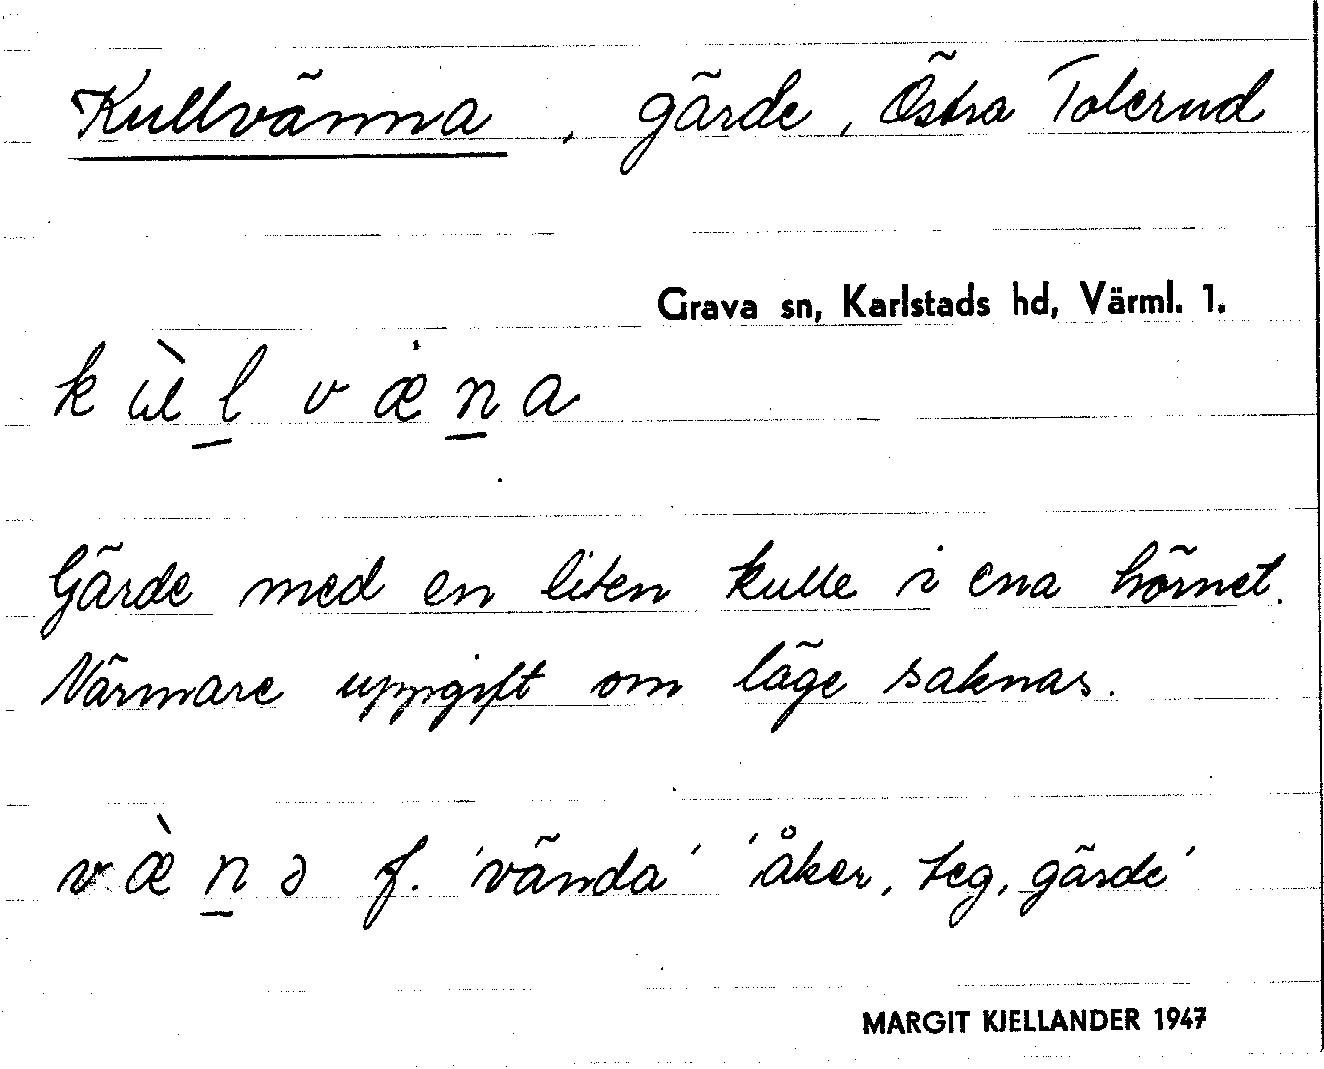 Kullvänna, gärde, Östra Tolerud
Grava sn, Karlstads hd, Värml. 1.
k ɯ̀l̲ v æ̇ n̲ a
Gärde med en liten kulle i ena hörnet.
Närmare uppgift om läge saknas.
v æ̀ n̲ ə f. 'vända' 'åker, teg, gärde'
MARGIT KJELLANDER 1947